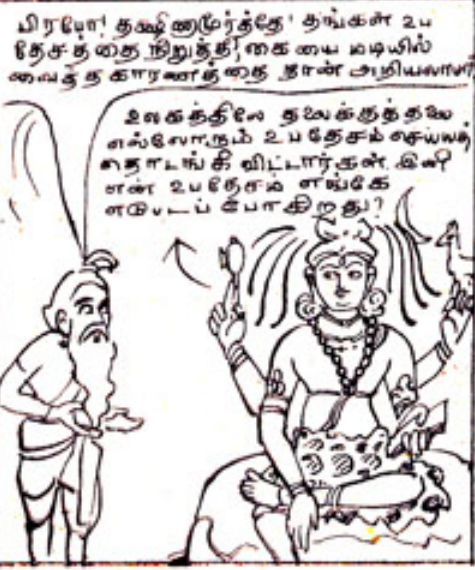 பிரபோ! தக்ஷிணாமூர்த்தே! தங்கள் உப
தேசத்தை நிறுத்தி, கையை மடியில்
வைத்த காரணத்தை நான் அறியலாமா
உலகத்திலே தலைக்குத்தலை
எல்லோரும் உபதேசம் செய்யத்
தொடங்கி விட்டார்கள். இனி
என் உபதேசம் எங்கே
எடுபடப் போகிறது?